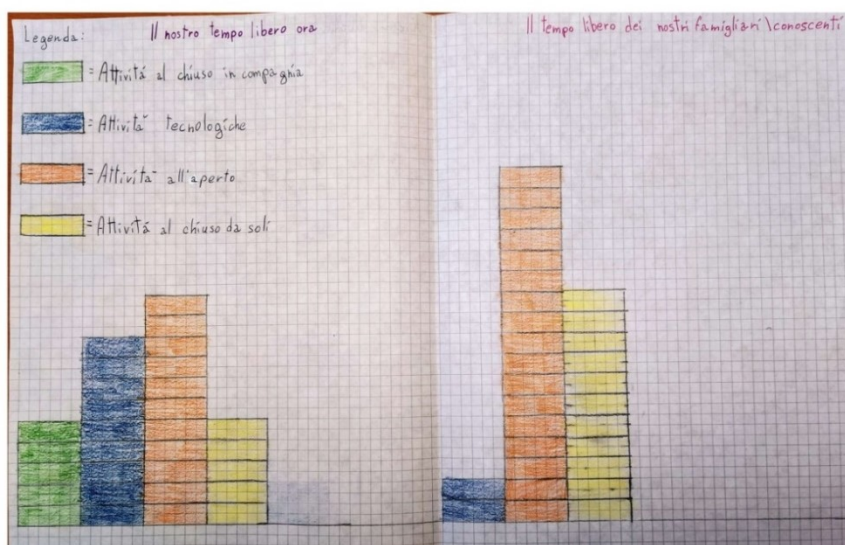 Legenda:
Il nostro tempo libero ora
= Attivitá al chiuso in compaghia
= Attivita' tecnologiche
= Attivita' all'aperto
= Attivitá al chiuso da soli
Il tempo libero dei nostri famigliari\conoscenti